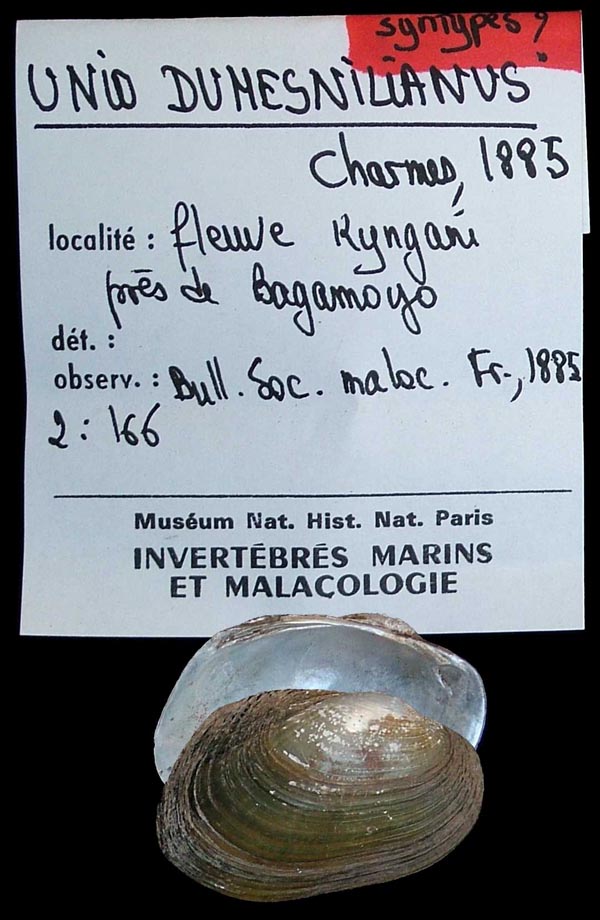 symypes ?
UNIO DUMESNILIANUS
Charmes, 1885
localité : fleuve Kyngani
près de Bagamoyo
dét. :
observ. : Bull. Soc. malac. Fr., 1885
2 : 166
Muséum Nat. Hist. Nat. Paris
INVERTÉBRÉS MARINS
ET MALACOLOGIE